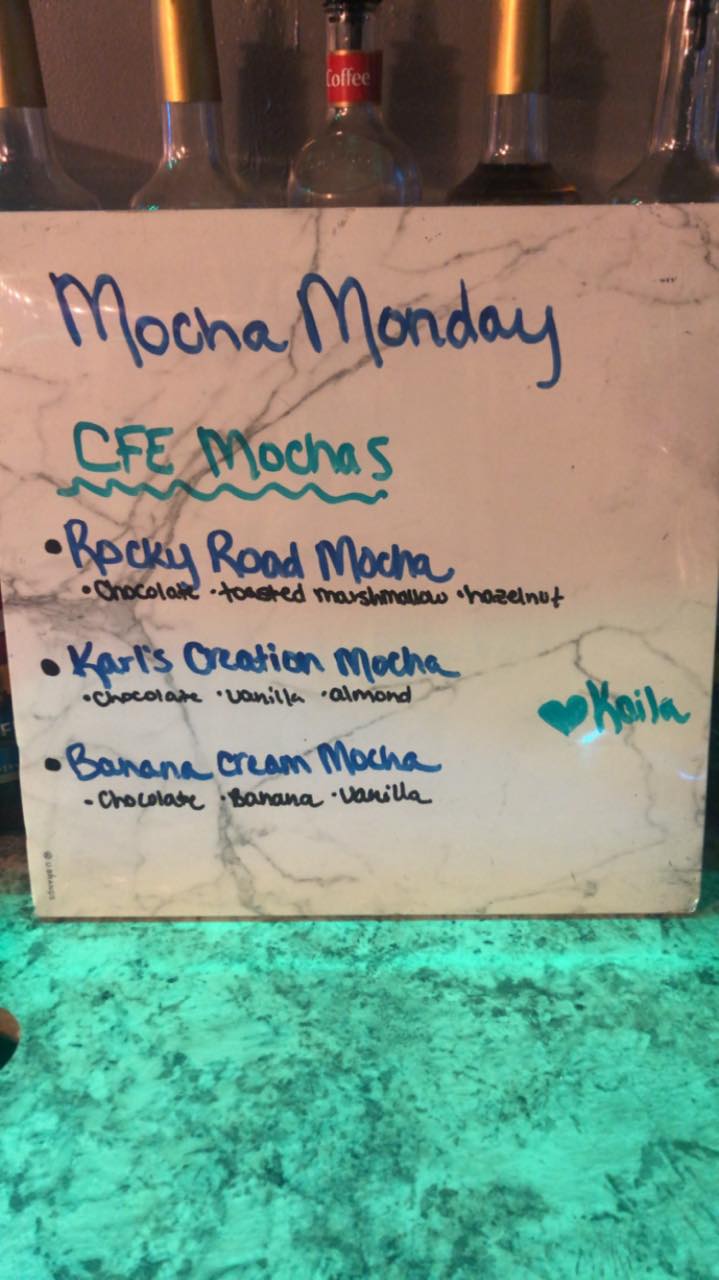 Coffee
Mocha Monday
CFE Mochas
• Rocky Road Mocha
• Chocolate • toasted marshmallow • hazelnut
• Karl's Creation Mocha
• Chocolate • vanilla • almond
♥ Kaila
• Banana cream Mocha
• Chocolate • Banana • Vanilla